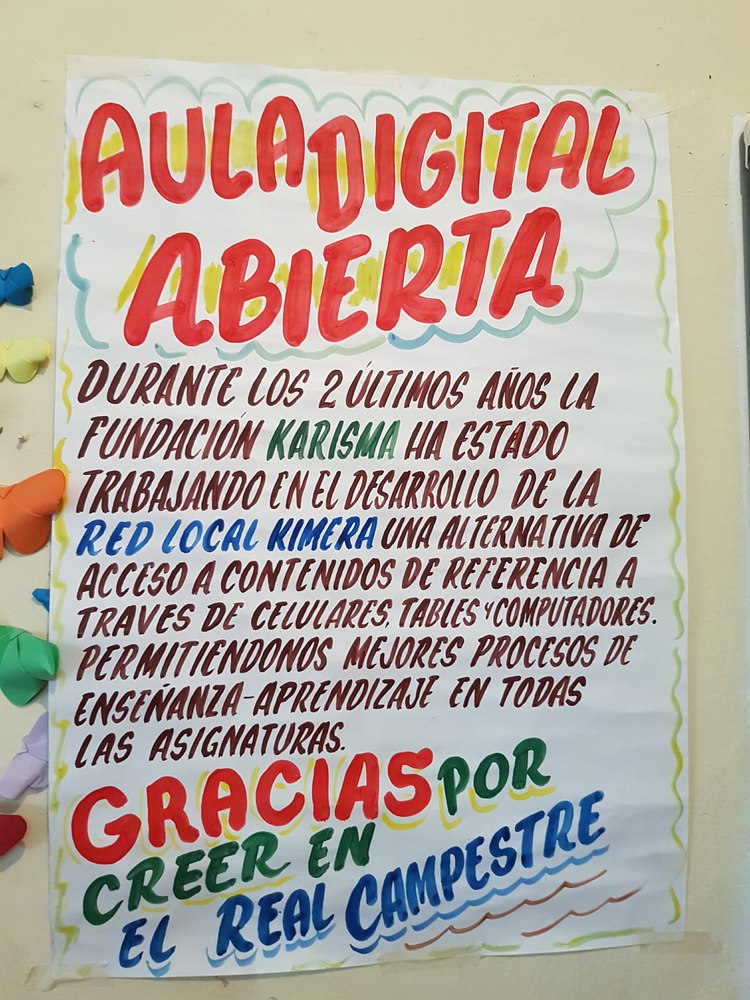 AULA DIGITAL
ABIERTA
DURANTE LOS 2 ÚLTIMOS AÑOS LA
FUNDACIÓN KARISMA HA ESTADO
TRABAJANDO EN EL DESARROLLO DE LA
RED LOCAL KIMERA UNA ALTERNATIVA DE
ACCESO A CONTENIDOS DE REFERENCIA A
TRAVES DE CELULARES, TABLES Y COMPUTADORES.
PERMITIENDONOS MEJORES PROCESOS DE
ENSEÑANZA-APRENDIZAJE EN TODAS
LAS ASIGNATURAS.
GRACIAS POR
CREER EN
EL REAL CAMPESTRE